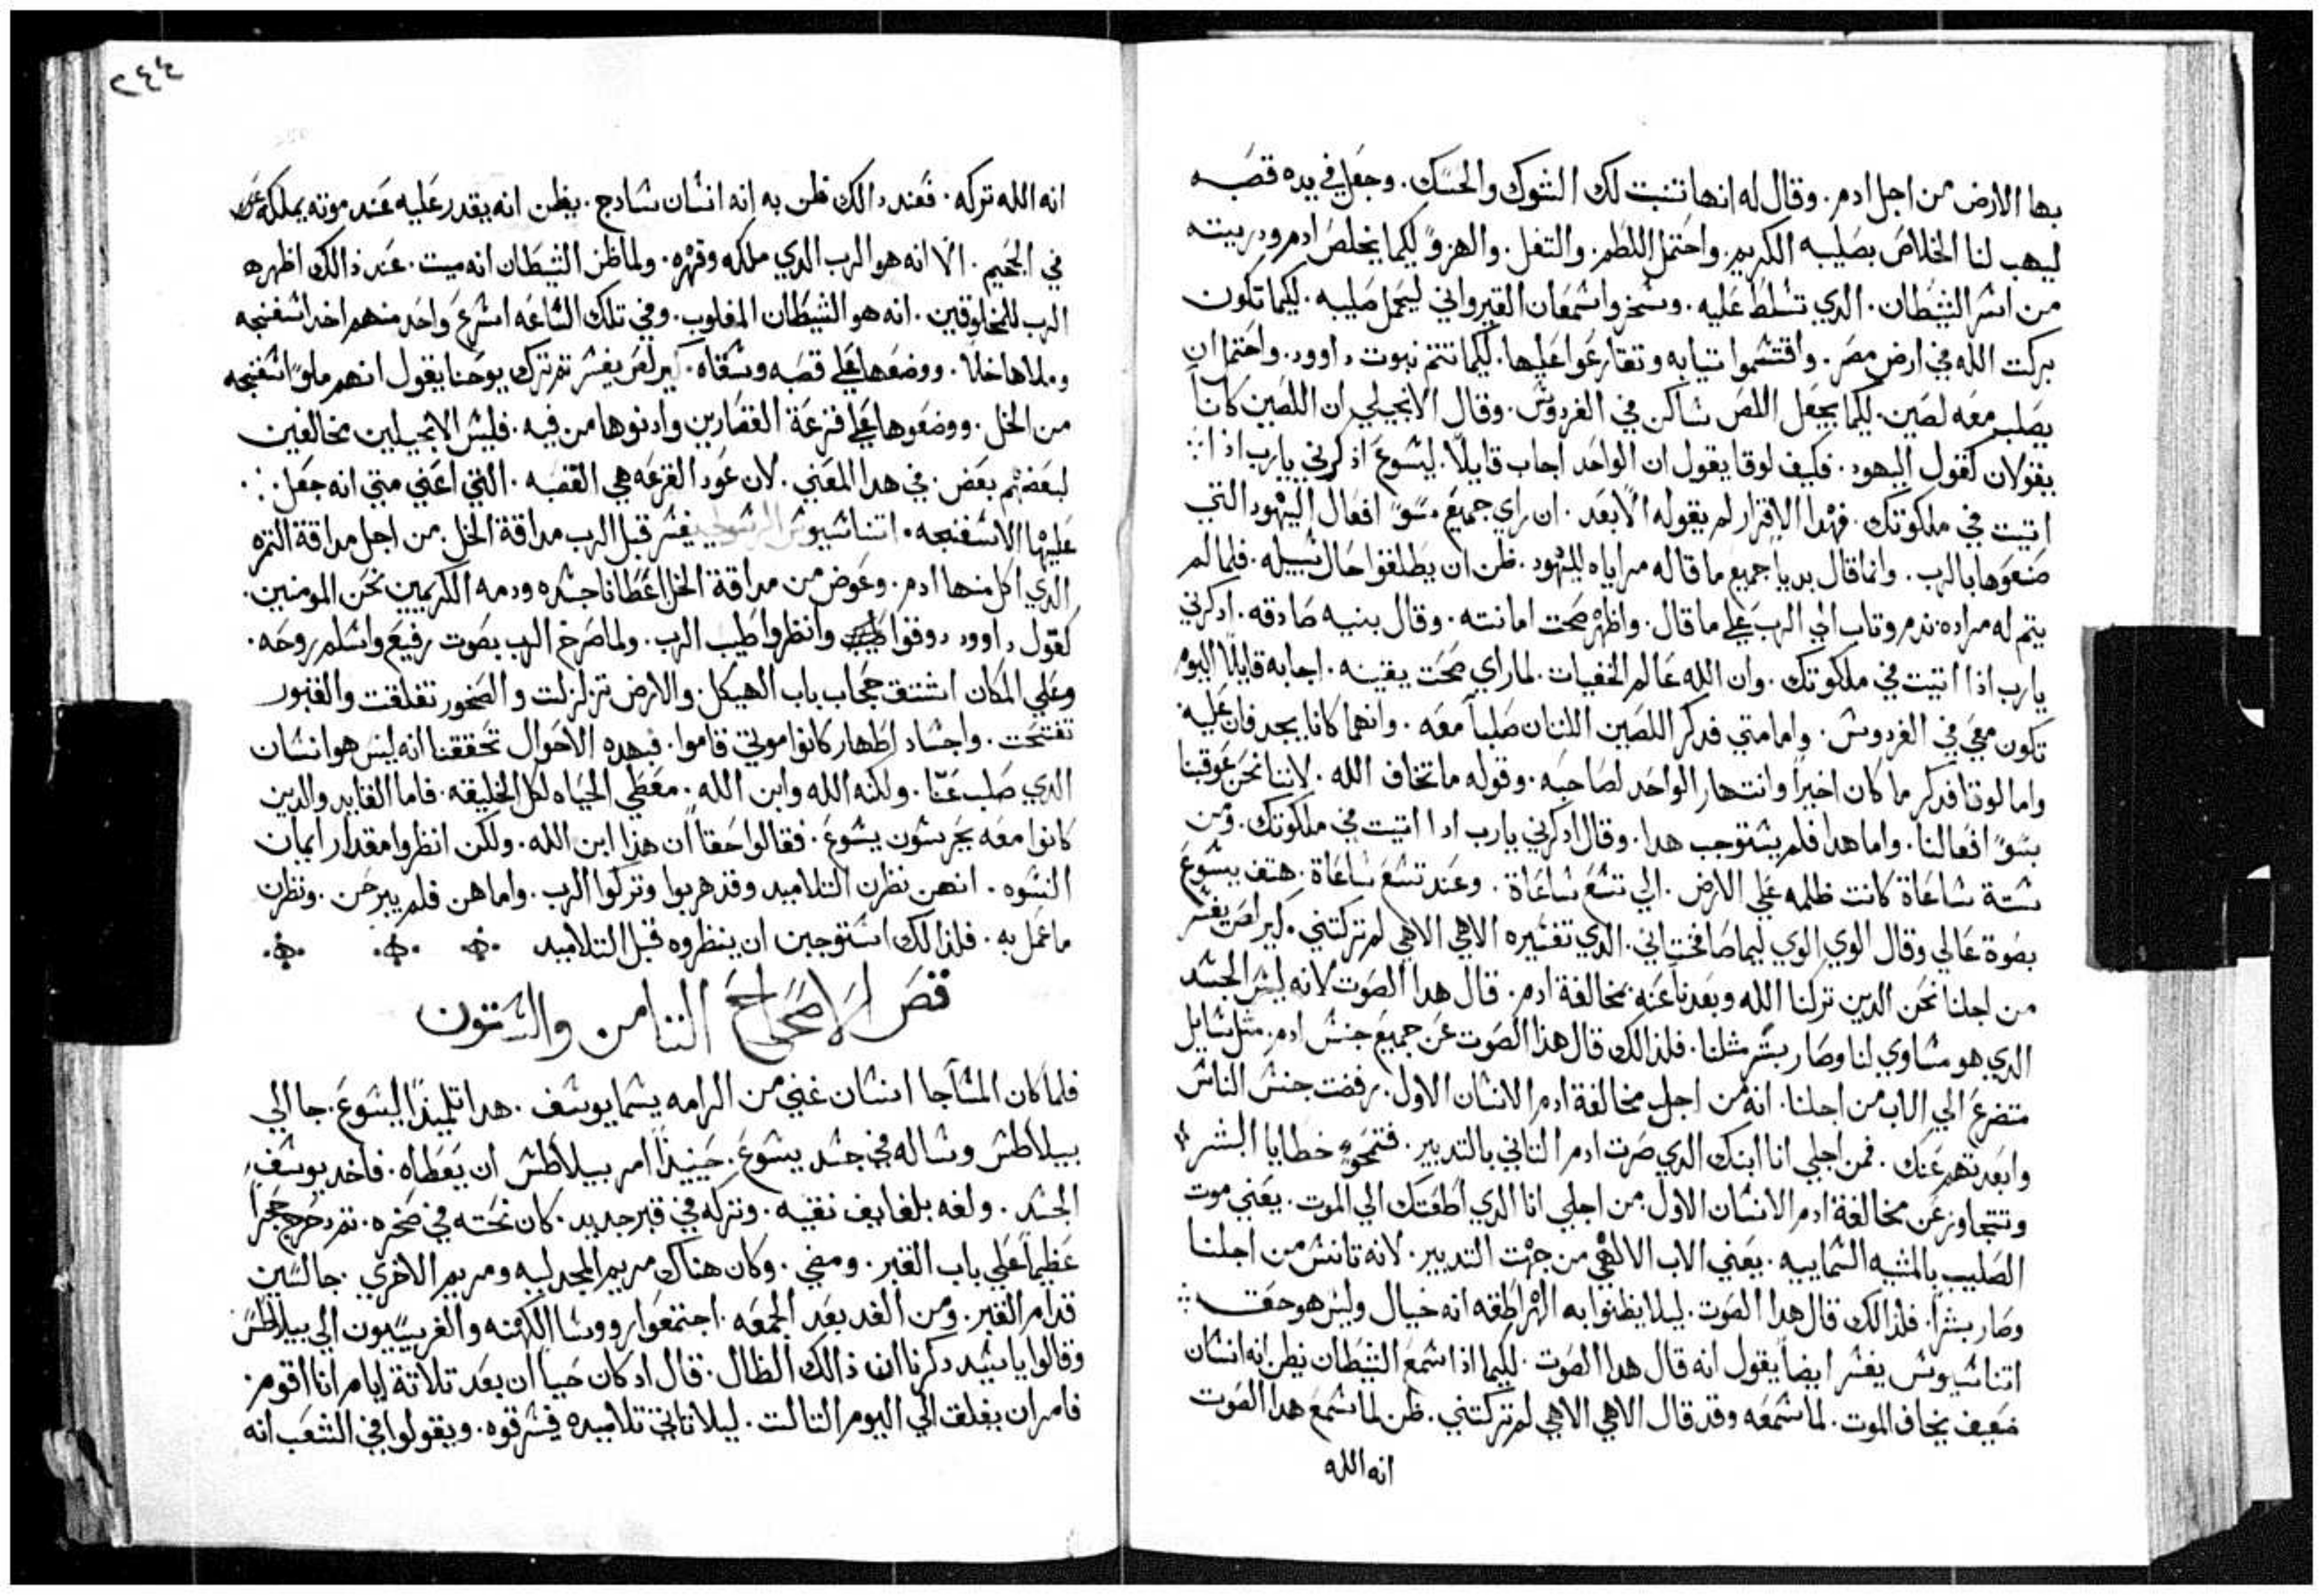 بها الارض من اجل ادم. وقال له انها تنبت لك الشوك والحسك. وجعل في يده قصبه
ليهب لنا الخلاص بصليبه الكريم. واحتمل اللطم. والتفل. والهزؤ لكيما يخلص ادم ودريته
من اسر الشيطان. الدي تسلط عليه. وسخروا سمعان القيرواني ليحمل صليبه. لكيما تكون
بركت الله في ارض مصر. واقتسموا تيابه وتقارعوا عليها. لكيما تتم نبوت داوود. واحتمل ان
يصلب معه لصين. لكيما يجعل اللص ساكن في الفردوس. وقال الانجيلي ان اللصين كاناً
يقولان كقول اليهود. فكيف لوقا يقول ان الواحد اجاب قايلاً. ليسوع اذكرني يارب اذا
اتيت في ملكوتك. فهدا الاقرار لم يقوله الا بعد. ان راي جميع سوّ افعال اليهود التي
صنعوها بالرب. وانما قال بديا جميع ما قاله مراياه لليهود. ظن ان يطلقوا حال سبيله. فلما لم
يتم له مراده ندم وتاب الي الرب علي ما قال. واظهر صحت امانته. وقال بنيه صادقه. ادكرني
يارب اذا اتيت في ملكوتك. وان الله عالم الخفيات. لما راي صحت يقينه. اجابه قايلاً اليوم
تكون معي في الفردوس. واما متي فدكر اللصين اللدان صلبا معه. وانهما كانا يجدفان عليه
واما لوقا فدكر ما كان اخيراً وانتهار الواحد لصاحبه. وقوله ما تخاف الله. لاننا نحن عوقبنا
بسوّ افعالنا. واما هدا فلم يستوجب هدا. وقال ادكرني يارب ادا اتيت في ملكوتك. ومن
ستة ساعاة كانت ظلمه علي الارض. الي تسع ساعاة. وعند تسع ساعاة. هتف يسوع
بصوة عالي وقال الوي الوي ليما صافختاني. الدي تفسيره الاهي الاهي لم تركتني. كيرلص يفسر
من اجلنا نحن الدين تركنا الله وبعدنا عنه بمخالفة ادم. قال هدا الصوت لانه لبس الجسد
الدي هو مساوي لنا وصار بشر مثلنا. فلدالك قال هذا الصوت عن جميع جنس ادم. مثل سايل
متضرع الي الاب من اجلنا. انه من اجل مخالفة ادم الانسان الاول. رفضت جنس الناس
وابعدتهم عنك. فمن اجلي انا ابنك الدي صرت ادم التاني بالتدبير. فتمحو خطايا البشر
وتتجاوز عن مخالفة ادم الانسان الاول. من اجلي انا الدي اطعتك الي الموت. يعني موت
الصليب بالمشيه السماييه. يعني الاب الالهي من جهت التدبير. لانه تانس من اجلنا
وصار بشراً. فلدالك قال هدا الصوت. ليلا يظنوا به الهراطقه انه خيال وليس هو حق
اتناسيوس يفسر ايضاً يقول انه قال هدا الصوت. لكيما اذا سمع الشيطان يظن انه انسان
ضعيف يخاف الموت. لما سمعه وقد قال الاهي الاهي لم تركتني. ظن لما سمع هدا الصوت
انه الله
٢٤٤
انه الله تركه. فعند دالك ظن به انه انسان سادج. يظن انه يقدر عليه عند موته يملكه
في الجحيم. الا انه هو الرب الدي ملكه وقهره. ولما ظن الشيطان انه ميت. عند ذالك اظهره
الرب للمخلوقين. انه هو الشيطان المغلوب. وفي تلك الساعه اسرع واحد منهم اخد اسفنجه
وملاها خلاً. ووضعها علي قصبه وسقاه. كيرلص يفسر تم ترك يوحنا يقول انهم ملوا اسفنجه
من الخل. ووضعوها علي قزعة القصارين وادنوها من فيه. فليس الانجيليين مخالفين
لبعضهم بعض. في هدا المعني. لان عود القزعه هي القصبه. التي اعني متي انه جعل
عليها الاسفنجه. اتناسيوس الرسولي يفسر قبل الرب مداقة الخل. من اجل مداقة التمره
الدي اكل منها ادم. وعوض من مداقة الخل اعطانا جسده ودمه الكريمين نحن المومنين.
كقول داوود دوقوا وانظروا طيب الرب. ولما صرخ الرب بصوت رفيع واسلم روحه.
وعلي المكان انشق حجاب باب الهيكل. والارض تزلزلت والصخور تفلقت والقبور
تفتحت. واجساد اطهار كانوا موتي قاموا. فبهده الاحوال تحققنا انه ليس هو انسان
الدي صلب عنّا. ولكنه الله وابن الله. معطي الحياه لكل الخليقه. فاما القايد والدين
كانوا معه يحرسون يسوع. فقالوا حقاً ان هذا ابن الله. ولكن انظروا مقدار ايمان
النسوه. انهن نظرن التلاميد وقد هربوا وتركوا الرب. واما هن فلم يبرحن. ونظرن
ما عمل به. فلذالك استوجبن ان ينظروه قبل التلاميد
قصر الاصحاح التامن والستون
فلما كان المسا جا انسان غني من الرامه يسما يوسف. هدا تلميذاً ليسوع. جا الي
بيلاطس وساله في جسد يسوع. حينيذاً امر بيلاطس ان يعطاه. فاخد يوسف
الجسد. ولفه بلفايف نقيه. وتركه في قبر جديد. كان نحته في صخره. تم دحرج حجراً
عظيماً علي باب القبر. ومضي. وكان هناك مريم المجدليه ومريم الاخري. جالسين
قدام القبر. ومن الغد بعد الجمعه. اجتمعوا رووسا الكهنه والفريسيون الي بيلاطس
وقالوا يا سيد دكرنا ان ذالك الظال. قال اد كان حياً ان بعد تلاتة ايام انا اقوم.
فامر ان يغلق الي اليوم التالت. ليلا تاتي تلاميده فيسرقوه. ويقولوا في الشعب انه